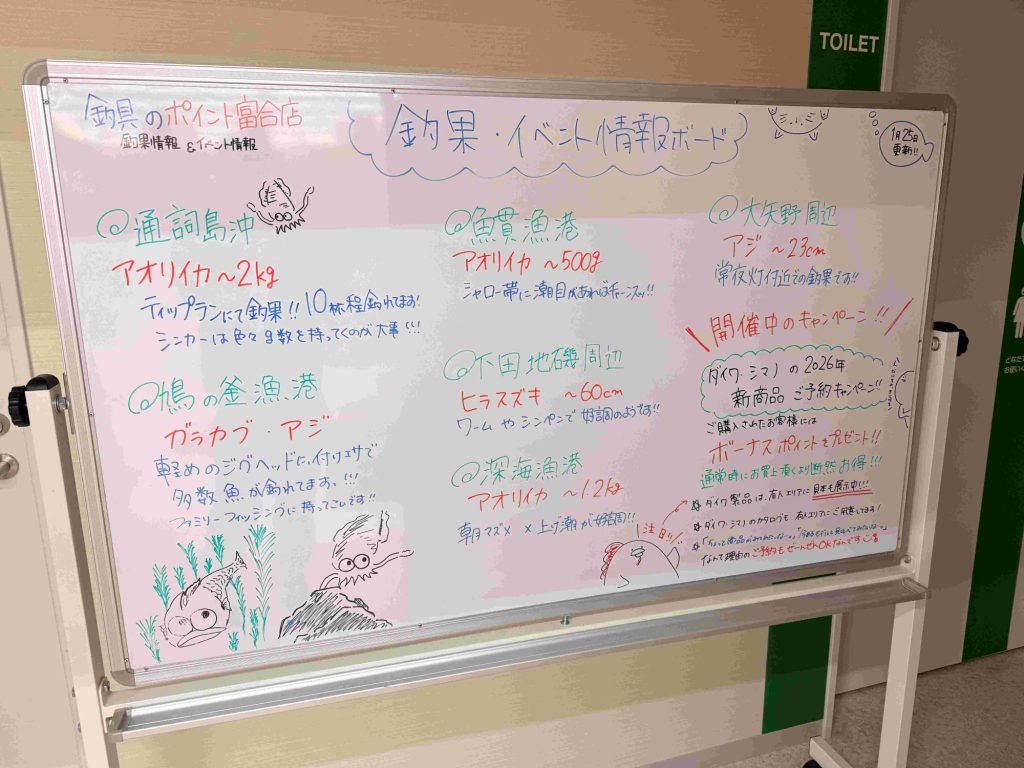 釣具のポイント富合店
釣果情報 & イベント情報
釣果・イベント情報ボード
1月25日
更新!!
@通詞島沖
アオリイカ ~2kg
ティップランにて釣果!! 10杯程釣れてます!
シンカーは色々号数を持ってくのが大事!!!
@鳩の釜漁港
ガラカブ・アジ
軽めのジグヘッドに付けエサで
多数魚が釣れてます!!!
ファミリーフィッシングに持ってこいです!!
@魚貫漁港
アオリイカ ~500g
シャロー帯に潮目があればチャーンスッ!!
@下田地磯周辺
ヒラスズキ ~60cm
ワームやシンペンで好調のようです!!
@深海漁港
アオリイカ ~1.2kg
朝マズメ × 上げ潮が好調!!
@大矢野周辺
アジ ~23cm
常夜灯付近での釣果です!!
開催中のキャンペーン!!
ダイワ・シマノの2026年
新商品ご予約キャンペーン!!
ご購入されたお客様には
ボーナスポイントをプレゼント!!
通常時にお買上頂くより断然お得!!!
注目!!
ダイワ製品は、有人エリアに見本も展示中!!!
ダイワ・シマノのカタログも、有人エリアにご用意してます!
なんて理由のご予約もぜーんぜんOKなんです
TOILET